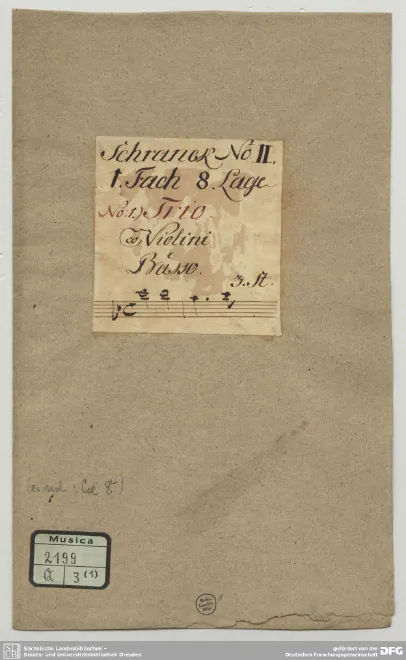 Schranck No II.
1. Fach 8. Lage
No: 1.) Trio.
Violini
Basso.
3. St.
Musica
2199
Q 3 (1)
Sächsische Landesbibliothek –
Staats- und Universitätsbibliothek Dresden
gefördert von der
Deutschen Forschungsgemeinschaft
DFG